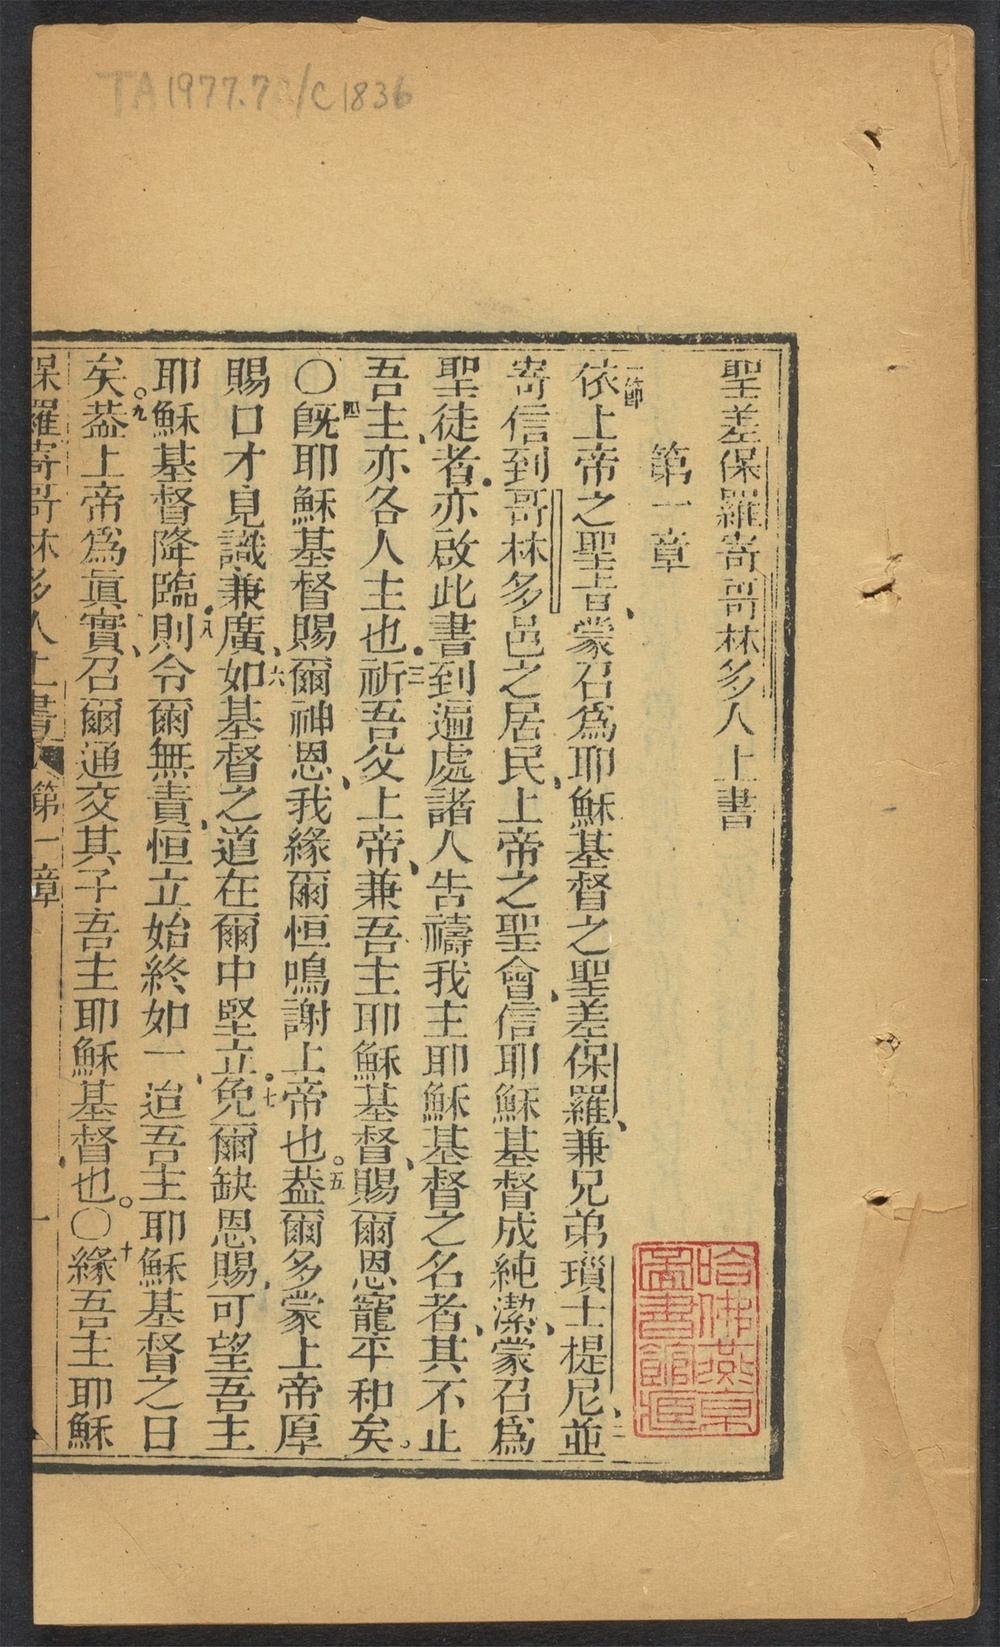 TA 1977.7 /C1836
聖差保羅寄哥林多人上書
第一章
一節依上帝之聖旨、蒙召爲耶穌基督之聖差保羅、兼兄弟瑣士提尼、二並
寄信到哥林多邑之居民、上帝之聖會、信耶穌基督成純潔、蒙召爲
聖徒者、亦啟此書到遍處諸人告禱我主耶穌基督之名者、其不止
吾主、亦各人主也。三祈吾父上帝、兼吾主耶穌基督、賜爾恩寵平和矣。
〇四旣耶穌基督賜爾神恩、我緣爾恒鳴謝上帝也。五葢爾多蒙上帝厚
賜口才見識兼廣、六如基督之道在爾中堅立。七免爾缺恩賜、可望吾主
耶穌基督降臨、八則令爾無責、恒立始終如一、迨吾主耶穌基督之日
矣。九葢上帝爲眞實、召爾通交其子吾主耶穌基督也。〇十緣吾主耶穌
保羅寄哥林多人上書 第一章 一
哈佛燕京
圖書館